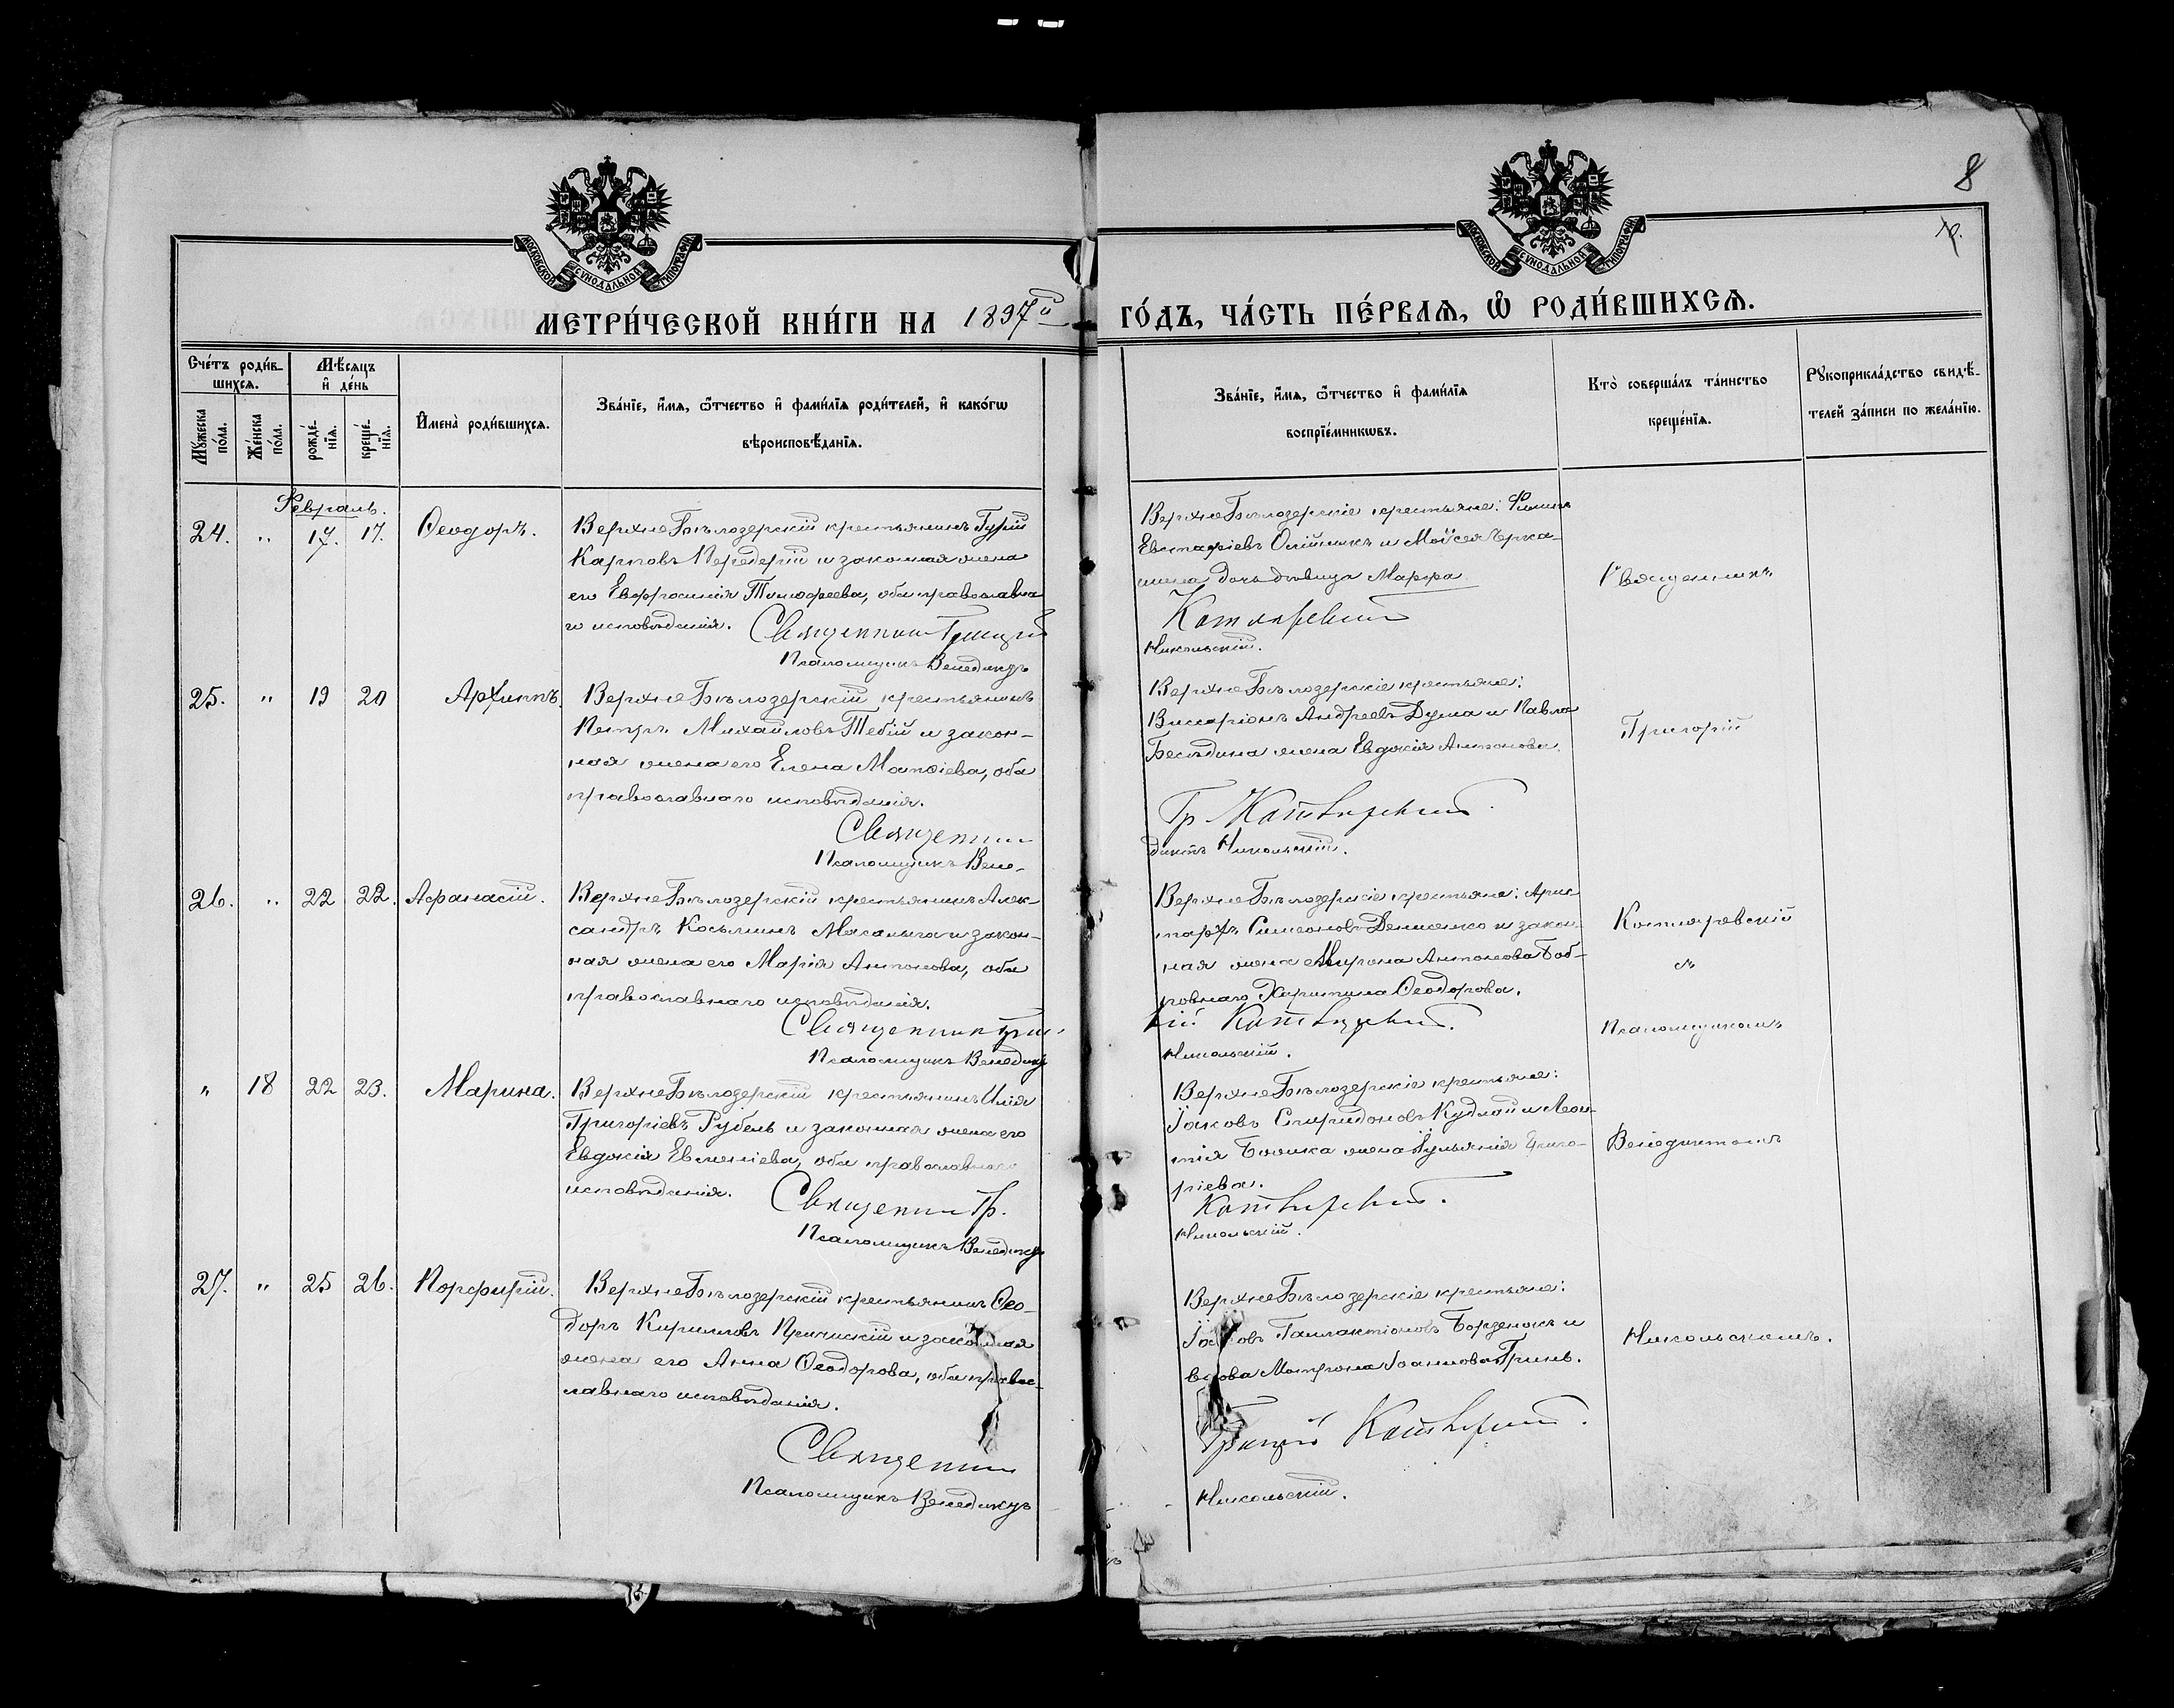 8
МОСКОВСКОЙ СУНОДАЛЬНОЙ ТИПОГРАФІИ
МОСКОВСКОЙ СУНОДАЛЬНОЙ ТИПОГРАФІИ
МЕТРИ́ЧЕСКОЙ КНИ́ГИ НА 1897й
ГО́ДЪ, ЧА́СТЬ ПЕ́РВАѦ, Ѽ РОДИ́ВШИХСѦ.
Сче́тъ роди́в-
шихсѧ.
Мѣ́сѧцъ
и҆ де́нь
Мꙋ́жеска
по́ла.
Же́нска
по́ла.
рожде́-
нїѧ.
креще́-
нїѧ.
И҆мена̀ роди́вшихсѧ.
Зва́нїе, и҆́мѧ, ѻ҆́тчество и҆ фами́лїѧ роди́телей, и҆ како́гѡ
вѣроисповѣ́данїѧ.
Зва́нїе, и҆́мѧ, ѻ҆́тчество и҆ фами́лїѧ
воспрїе́мникѡвъ.
Кто̀ соверша́лъ та́инство
креще́нїѧ.
Рꙋкоприкла́дство свидѣ́-
телей за́писи по жела́нїю.
Февраль.
24. " 17. 17. Ѳеодоръ.
Верхне Бѣлозерскій крестьянинъ Гурій
Карповъ Передерій и законная жена
его Евфросинія Тимофеева, оба православна-
го исповѣданія. Священник Григорій
Псаломщикъ Венедиктъ
Верхне Бѣлозерскіе крестьяне: Филипъ
Евстафіевъ Олійникъ и Моѵсея Черка-
шина дочь дѣвица Марфа
Котляревский
Никольскій.
Священникъ
25. " 19 20 Архиппъ.
Верхне Бѣлозерскій крестьянинъ
Петръ Михайловъ Тебій и закон-
ная жена его Елена Матѳіева, оба
православнаго исповѣданія.
Священник
Псаломщикъ Вене-
Верхне Бѣлозерскіе крестьяне:
Виссаріонъ Андреевъ Дума и Павла
Бесѣдина жена Евдокія Антонова.
Гр. Котляревский
диктъ Никольскій.
Григорій
26. " 22 22. Афанасій.
Верхне Бѣлозерскій крестьянинъ Алек-
сандръ Косьминъ Масалыга и закон-
ная жена его Марія Антонова, оба
православнаго исповѣданія.
Священник Григо-
Псаломщикъ Венедиктъ
Верхне Бѣлозерскіе крестьяне: Арис-
тархъ Симеоновъ Денисенко и закон-
ная жена Мирона Антонова Боб-
ровнаго Харитина Ѳеодорова.
рій Котляревский.
Никольскій.
Котляревскій
съ
Псаломщикомъ
" 18 22 23. Марина.
Верхне Бѣлозерскій крестьянинъ Илія
Григоріевъ Рубель и законная жена его
Евдокія Евменіева, оба православнаго
исповѣданія. Священник Гр.
Псаломщикъ Венедиктъ
Верхне Бѣлозерскіе крестьяне:
Іаковъ Спиридоновъ Кудлай и Леон-
тія жена Іульянія Григо-
ріева.
Котляревский.
Никольскій.
Венедиктомъ
27. " 25 26. Порфирій.
Верхне Бѣлозерскій крестьянинъ Ѳео-
доръ Кирилловъ и законная
жена его Анна Ѳеодорова, оба правос-
лавнаго исповѣданія.
Священник
Псаломщикъ Венедиктъ
Верхне Бѣлозерскіе крестьяне:
Іаковъ Галактіоновъ и
вдова Матрона Іоаннова Гринь.
Григорій Котляревский.
Никольскій.
Никольскимъ.